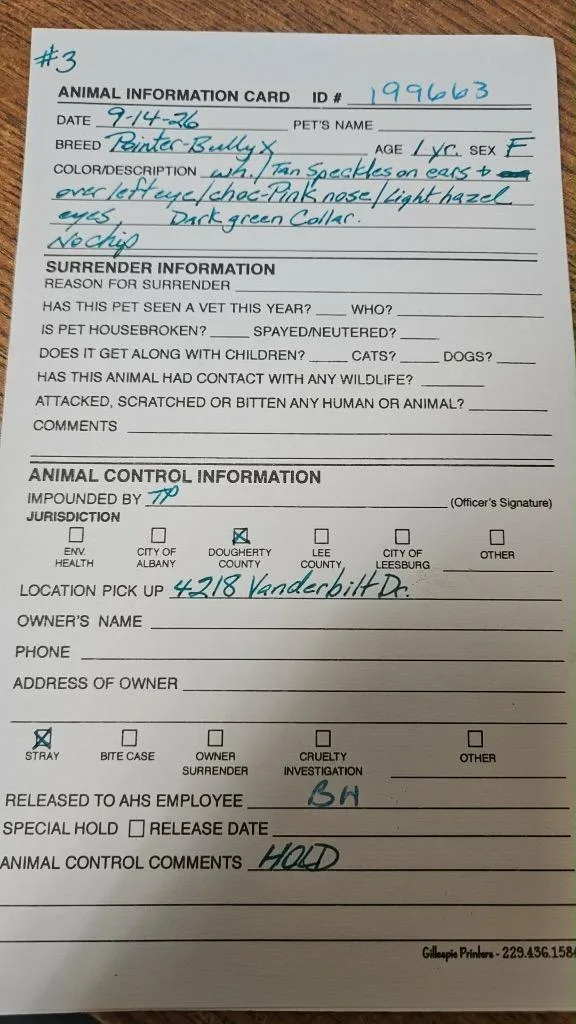 #3
ANIMAL INFORMATION CARD ID # 199663
DATE 9-14-26 PET'S NAME
BREED Pointer-Bully x AGE 1 yr. SEX F
COLOR/DESCRIPTION wh./Tan Speckles on ears +
over left eye/choc-Pink nose/Light hazel
eyes, Dark green Collar.
No chip
SURRENDER INFORMATION
REASON FOR SURRENDER
HAS THIS PET SEEN A VET THIS YEAR? WHO?
IS PET HOUSEBROKEN? SPAYED/NEUTERED?
DOES IT GET ALONG WITH CHILDREN? CATS? DOGS?
HAS THIS ANIMAL HAD CONTACT WITH ANY WILDLIFE?
ATTACKED, SCRATCHED OR BITTEN ANY HUMAN OR ANIMAL?
COMMENTS
ANIMAL CONTROL INFORMATION
IMPOUNDED BY TP (Officer's Signature)
JURISDICTION
ENV. HEALTH CITY OF ALBANY DOUGHERTY COUNTY LEE COUNTY CITY OF LEESBURG OTHER
LOCATION PICK UP 4218 Vanderbilt Dr.
OWNER'S NAME
PHONE
ADDRESS OF OWNER
STRAY BITE CASE OWNER SURRENDER CRUELTY INVESTIGATION OTHER
RELEASED TO AHS EMPLOYEE BH
SPECIAL HOLD RELEASE DATE
ANIMAL CONTROL COMMENTS HOLD
Gillespie Printers - 229.436.1584